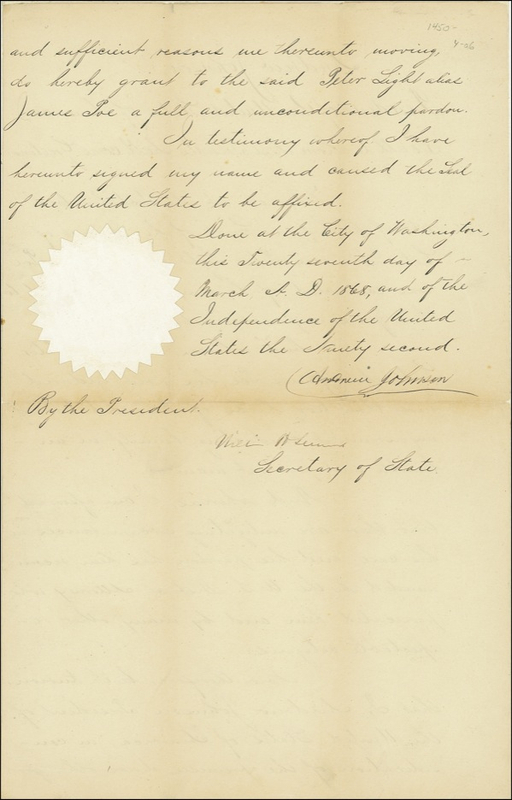 1450-
4-26
and sufficient reasons me thereunto moving,
do hereby grant to the said Peter Light alias
James Poe a full and unconditional pardon.
In testimony whereof I have
hereunto signed my name and caused the Seal
of the United States to be affixed.
Done at the City of Washington,
this Twenty seventh day of
March A. D. 1868, and of the
Independence of the United
States the Ninety second.
Andrew Johnson
By the President.
Secretary of State.